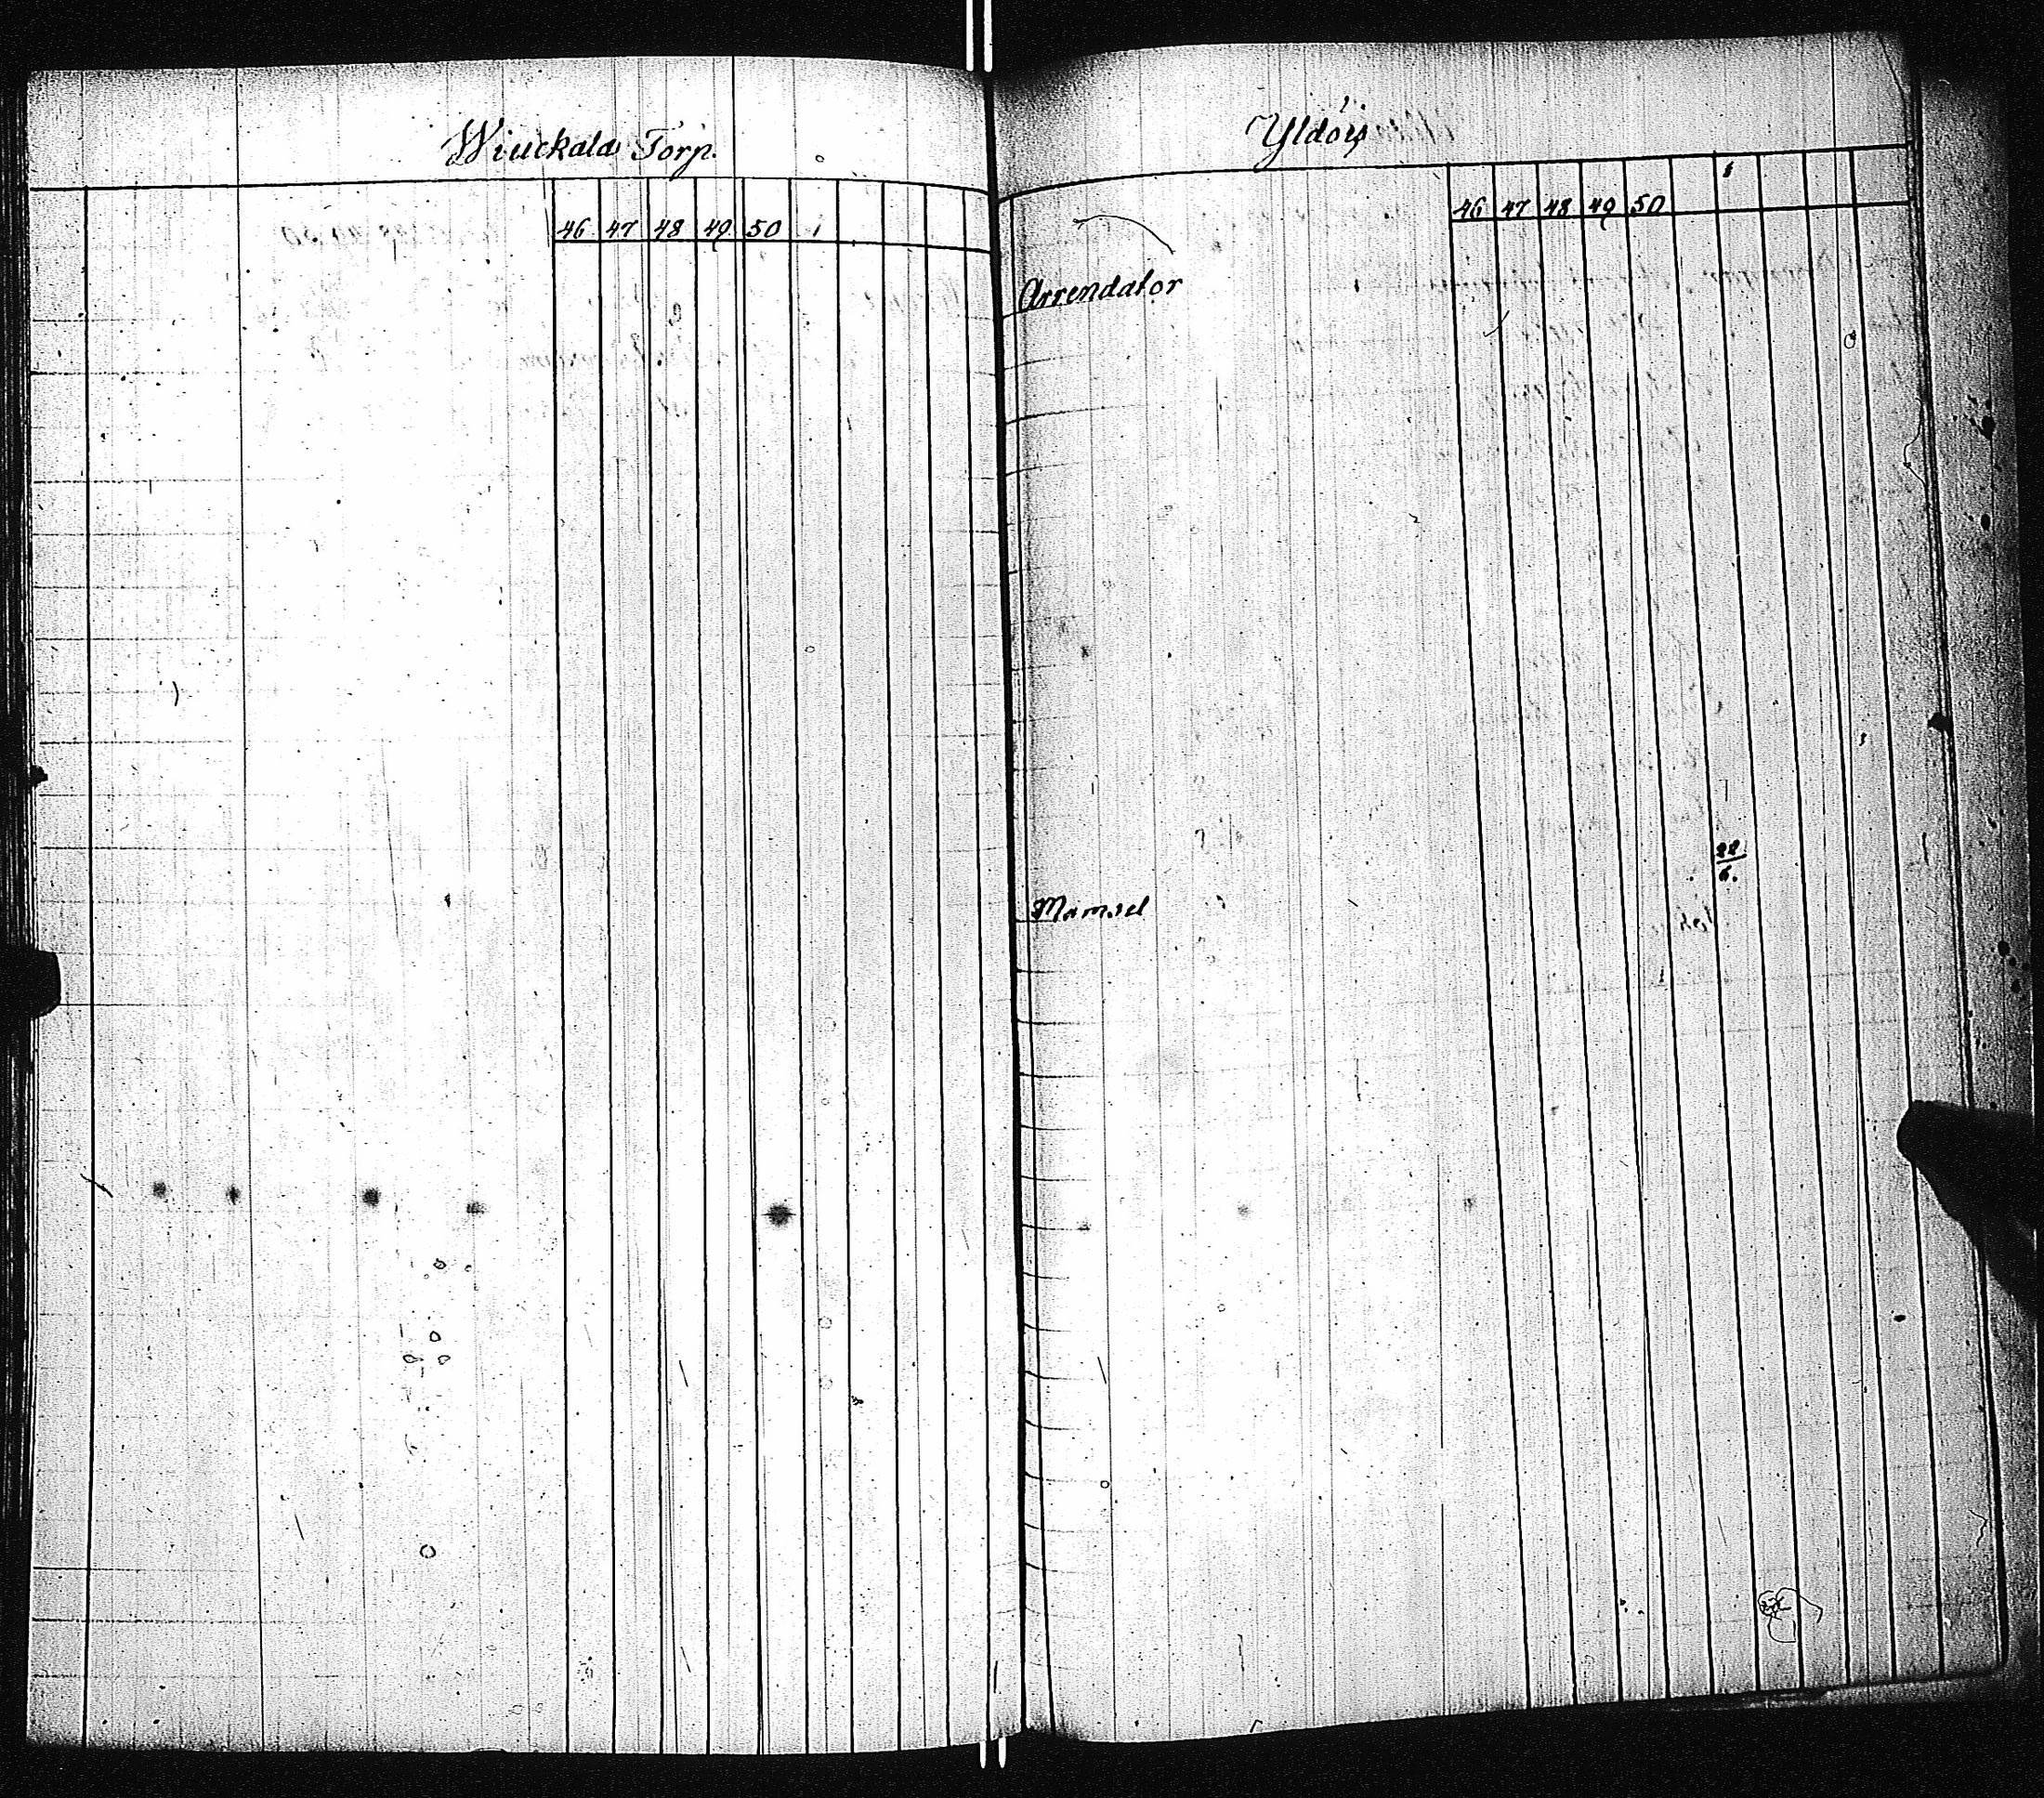 Wiuckala Torp.
46 47 48 49 50
Yldöis
46 47 48 49 50
Arrendator
22
6.
Mamsel